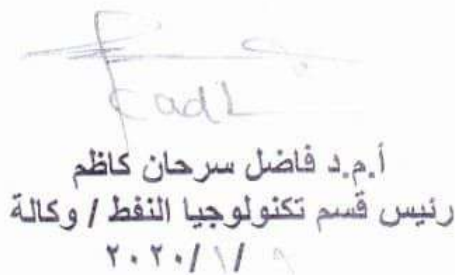 Fadl
أ.م.د فاضل سرحان كاظم
رئيس قسم تكنولوجيا النفط / وكالة
٢٠٢٠/١/٩